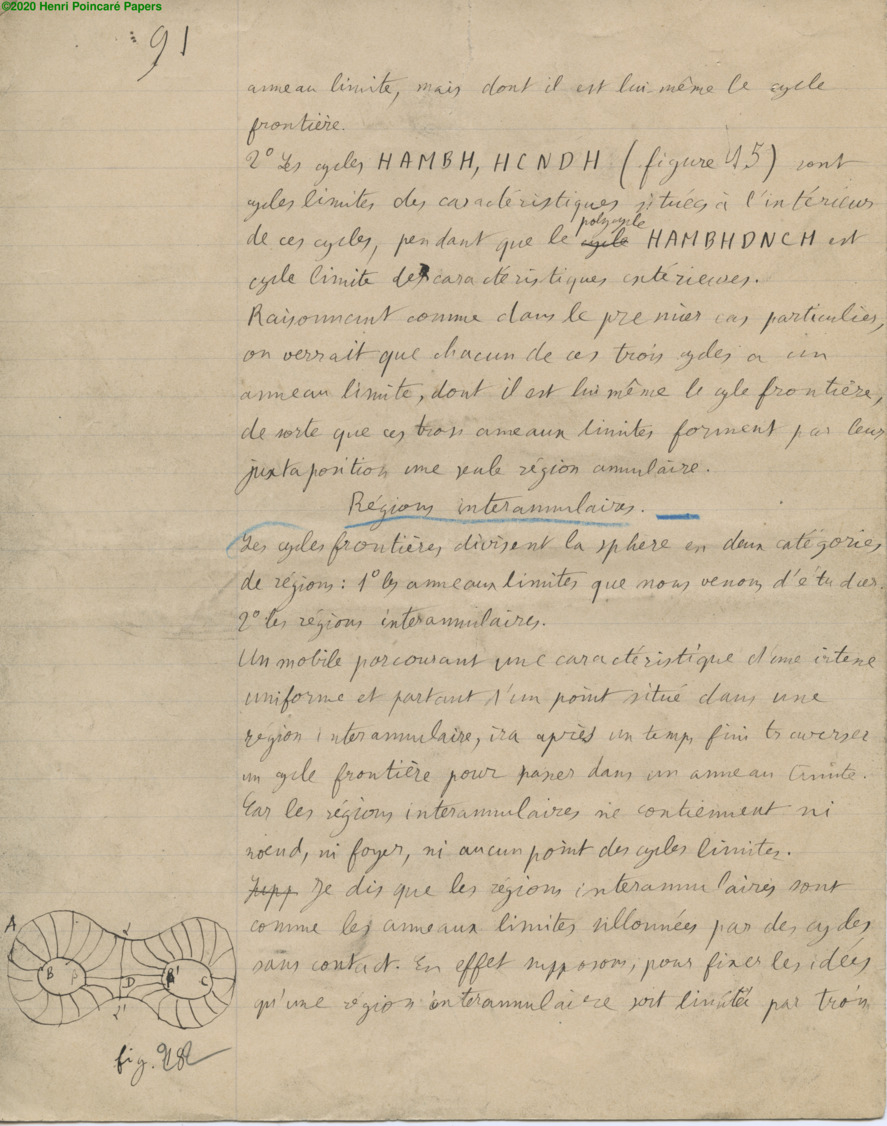 ©2020 Henri Poincaré Papers
91
anneau limite, mais dont il est lui même le cycle
frontière.
2° Les cycles HAMBH, HCNDH (figure 15) sont
cycles limites des caractéristiques situées à l'intérieur
polycycle
de ces cycles, pendant que le cycle HAMBHDNCH est
cycle limite des caractéristiques extérieures.
Raisonnant comme dans le premier cas particulier,
on verrait que chacun de ces trois cycles a un
anneau limite, dont il est lui même le cycle frontière,
de sorte que ces trois anneaux limites forment par leur
juxtaposition une seule région annulaire.
Régions interannulaires.
Les cycles frontières divisent la sphère en deux catégories
de régions: 1° les anneaux limites que nous venons d'étudier.
2° les régions interannulaires.
Un mobile parcourant une caractéristique d'une
uniforme et partant d'un point situé dans une
région interannulaire, ira après un temps fini traverser
un cycle frontière pour passer dans un anneau limite.
Car les régions interannulaires ne contiennent ni
nœud, ni foyer, ni aucun point des cycles limites.
Supp Je dis que les régions interannulaires sont
comme les anneaux limites sillonnées par des cycles
sans contact. En effet supposons, pour fixer les idées
qu'une région interannulaire soit limitée par trois
A
B
β
D
B'
C
fig.